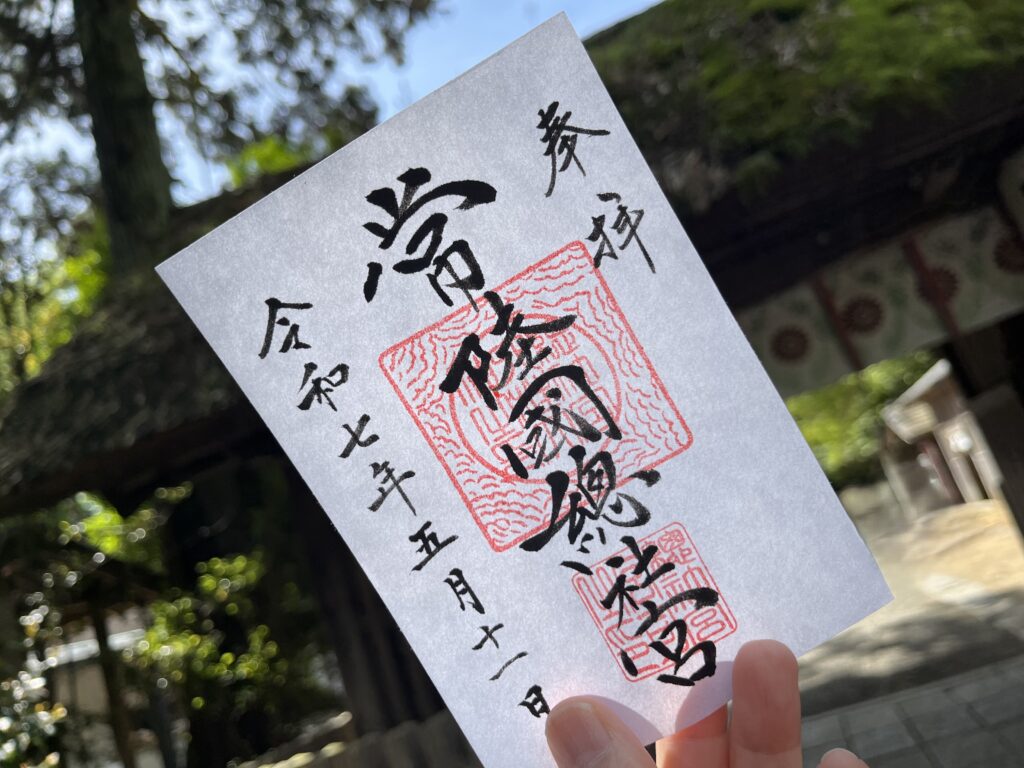 奉拝
常陸國總社宮
令和七年五月十一日